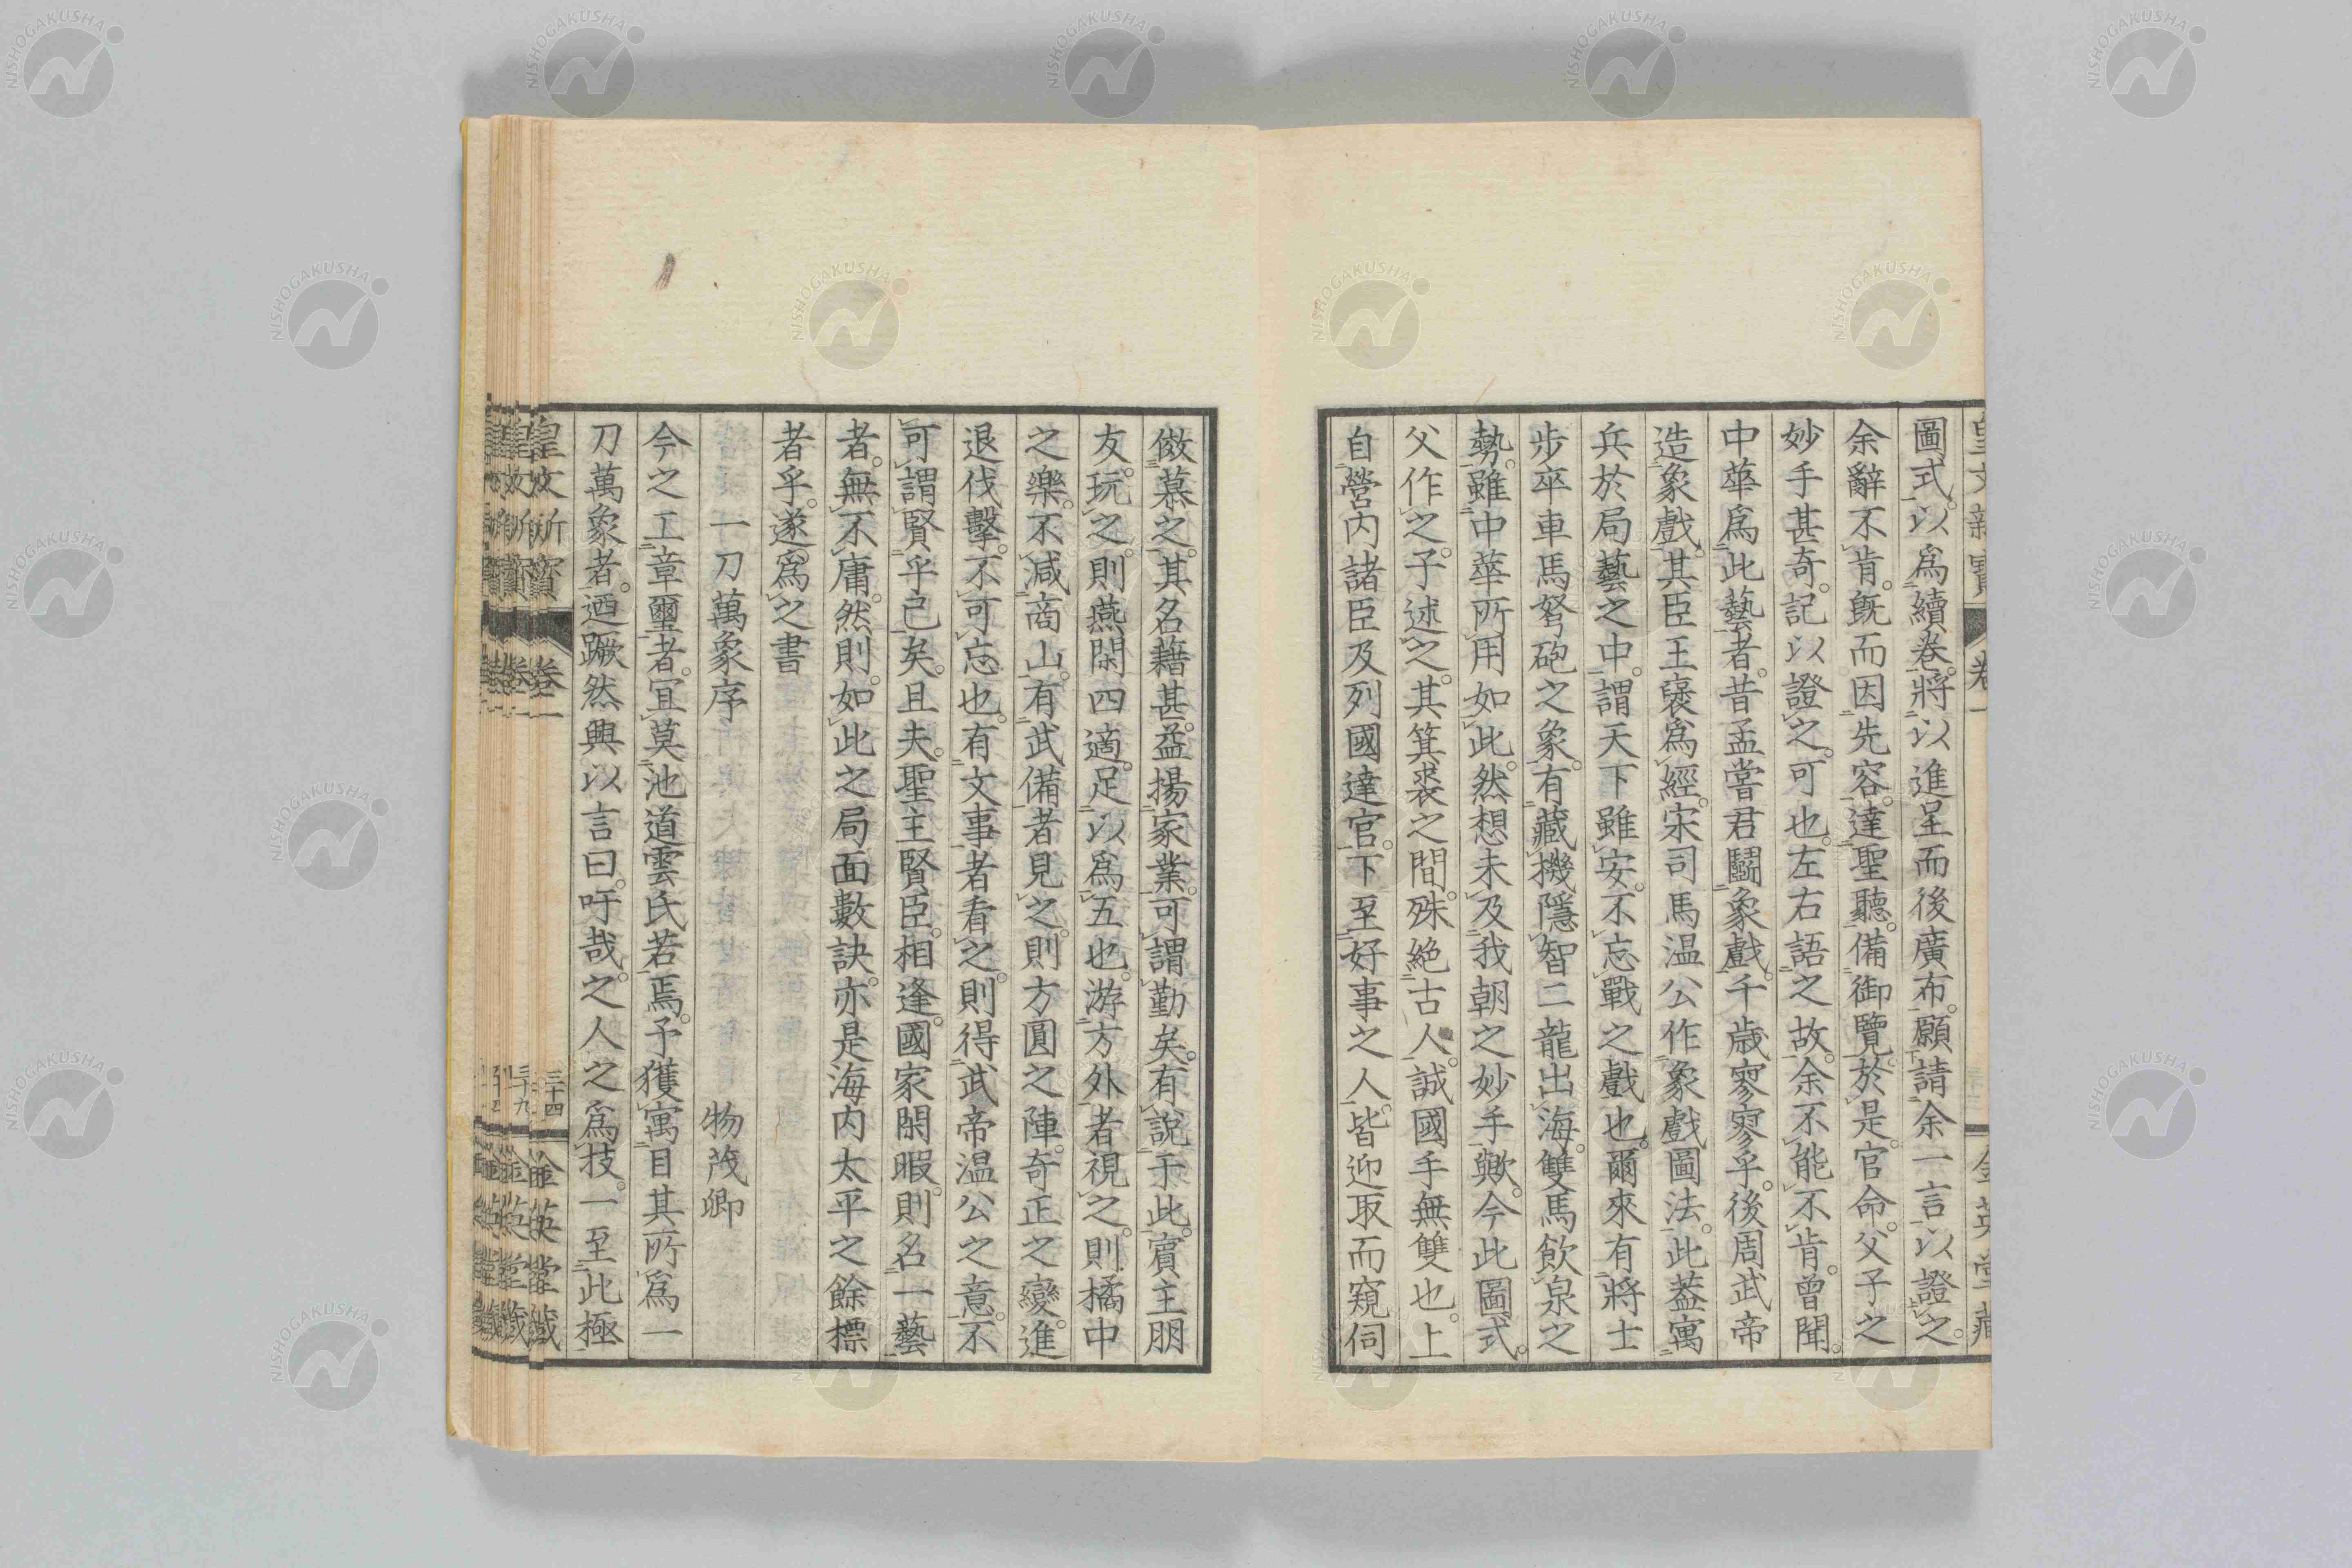 圖式。以爲續卷。將以進呈而後廣布。願請余一言以證之。
余辭不肯。旣而因先容。達聖聽。備御覽。於是。官命。父子之
妙手甚奇。記以證之。可也。左右語之故。余不能不肯。曾聞。
中華爲此藝者。昔孟嘗君鬭象戲。千歳寥寥乎。後周武帝
造象戲。其臣王襃爲經。宋司馬温公作象戲圖法。此葢寓
兵於局藝之中。謂天下雖安。不忘戰之戲也。爾來有將士
步卒車馬弩砲之象。有藏機隱智二龍出海。雙馬飮泉之
勢。雖中華所用如此。然想未及我朝之妙手歟。今此圖式。
父作之。子述之。其箕裘之間。殊絶古人。誠國手無雙也。上
自營内諸臣及列國達官。下至好事之人。皆迎取而窺伺
傚慕之。其名藉甚。益揚家業。可謂勤矣。有説于此。賓主朋
友。玩之。則燕閑四適。足以爲五也。游方外者視之。則橘中
之樂。不減商山。有武備者見之。則方圓之陣。奇正之變。進
退伐擊。不可忘也。有文事者看之。則得武帝温公之意。不
可謂賢乎已矣。且夫。聖主賢臣。相逢。國家閑暇。則名一藝
者。無不庸。然則。如此之局面數訣。亦是海内太平之餘標
者乎。遂爲之書
一刀萬象序
物茂卿
今之工章璽者。宜莫池道雲氏若焉。予獲寓目其所爲一
刀萬象者。迺蹶然興以言曰。吁哉。之人之爲技。一至此極
卷一
三十四
NISHOGAKUSHA